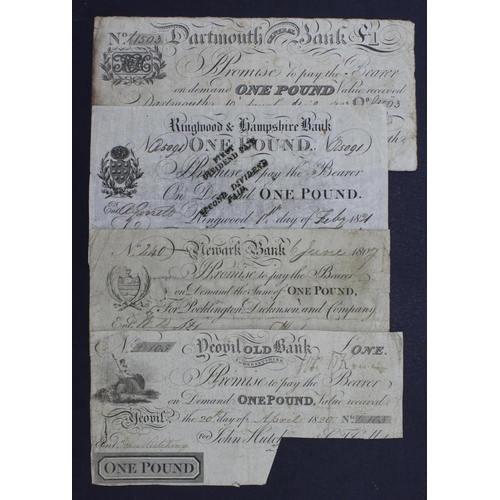 Dartmouth General Bank £1
I Promise to pay the Bearer
on demand ONE POUND Value received
Ringwood & Hampshire Bank
ONE POUND.
FIRST DIVIDEND PAID
SECOND DIVIDEND PAID
I Promise to pay the Bearer
On Demand ONE POUND.
Ringwood 1st day of Feby 1821
No 240 Newark Bank 6 June 1807
I Promise to pay the Bearer
on Demand the Sum of ONE POUND,
For Pocklington Dickinson and Company
Yeovil OLD Bank ONE.
SOMERSETSHIRE
I Promise to pay the Bearer
on Demand ONE POUND, Value received
Yeovil, the 20th day of April 1820
for John Hutch
ONE POUND